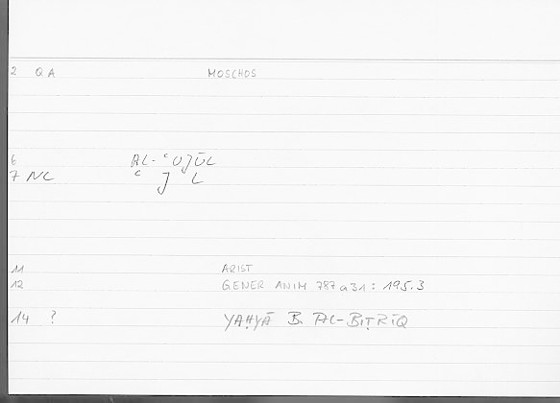 2 QA MOSCHOS
6 AL-ʿUJŪL
7 NC ʿ J L
11 ARIST
12 GENER ANIM 787a31: 195.3
14 ? YAḤYĀ B. AL-BIṬRĪQ